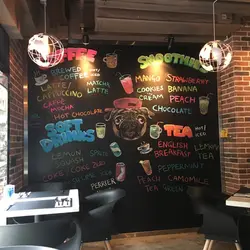 COFFEE
BREWED
COFFEE
MATCHA
LATTE
LATTE /
CAPPUCCINO
CAFFE
MOCHA
HOT CHOCOLATE
SMOOTHIE
MANGO STRAWBERRY
COOKIES BANANA
CREAM PEACH
CHOCOLATE
SOFT
DRINKS
LEMON SPRITE
SODA
COKE / COKE ZERO
PERRIER
TEA
ENGLISH
BREAKFAST
LEMON
PEACH CAMOMILE
PEPPERMINT